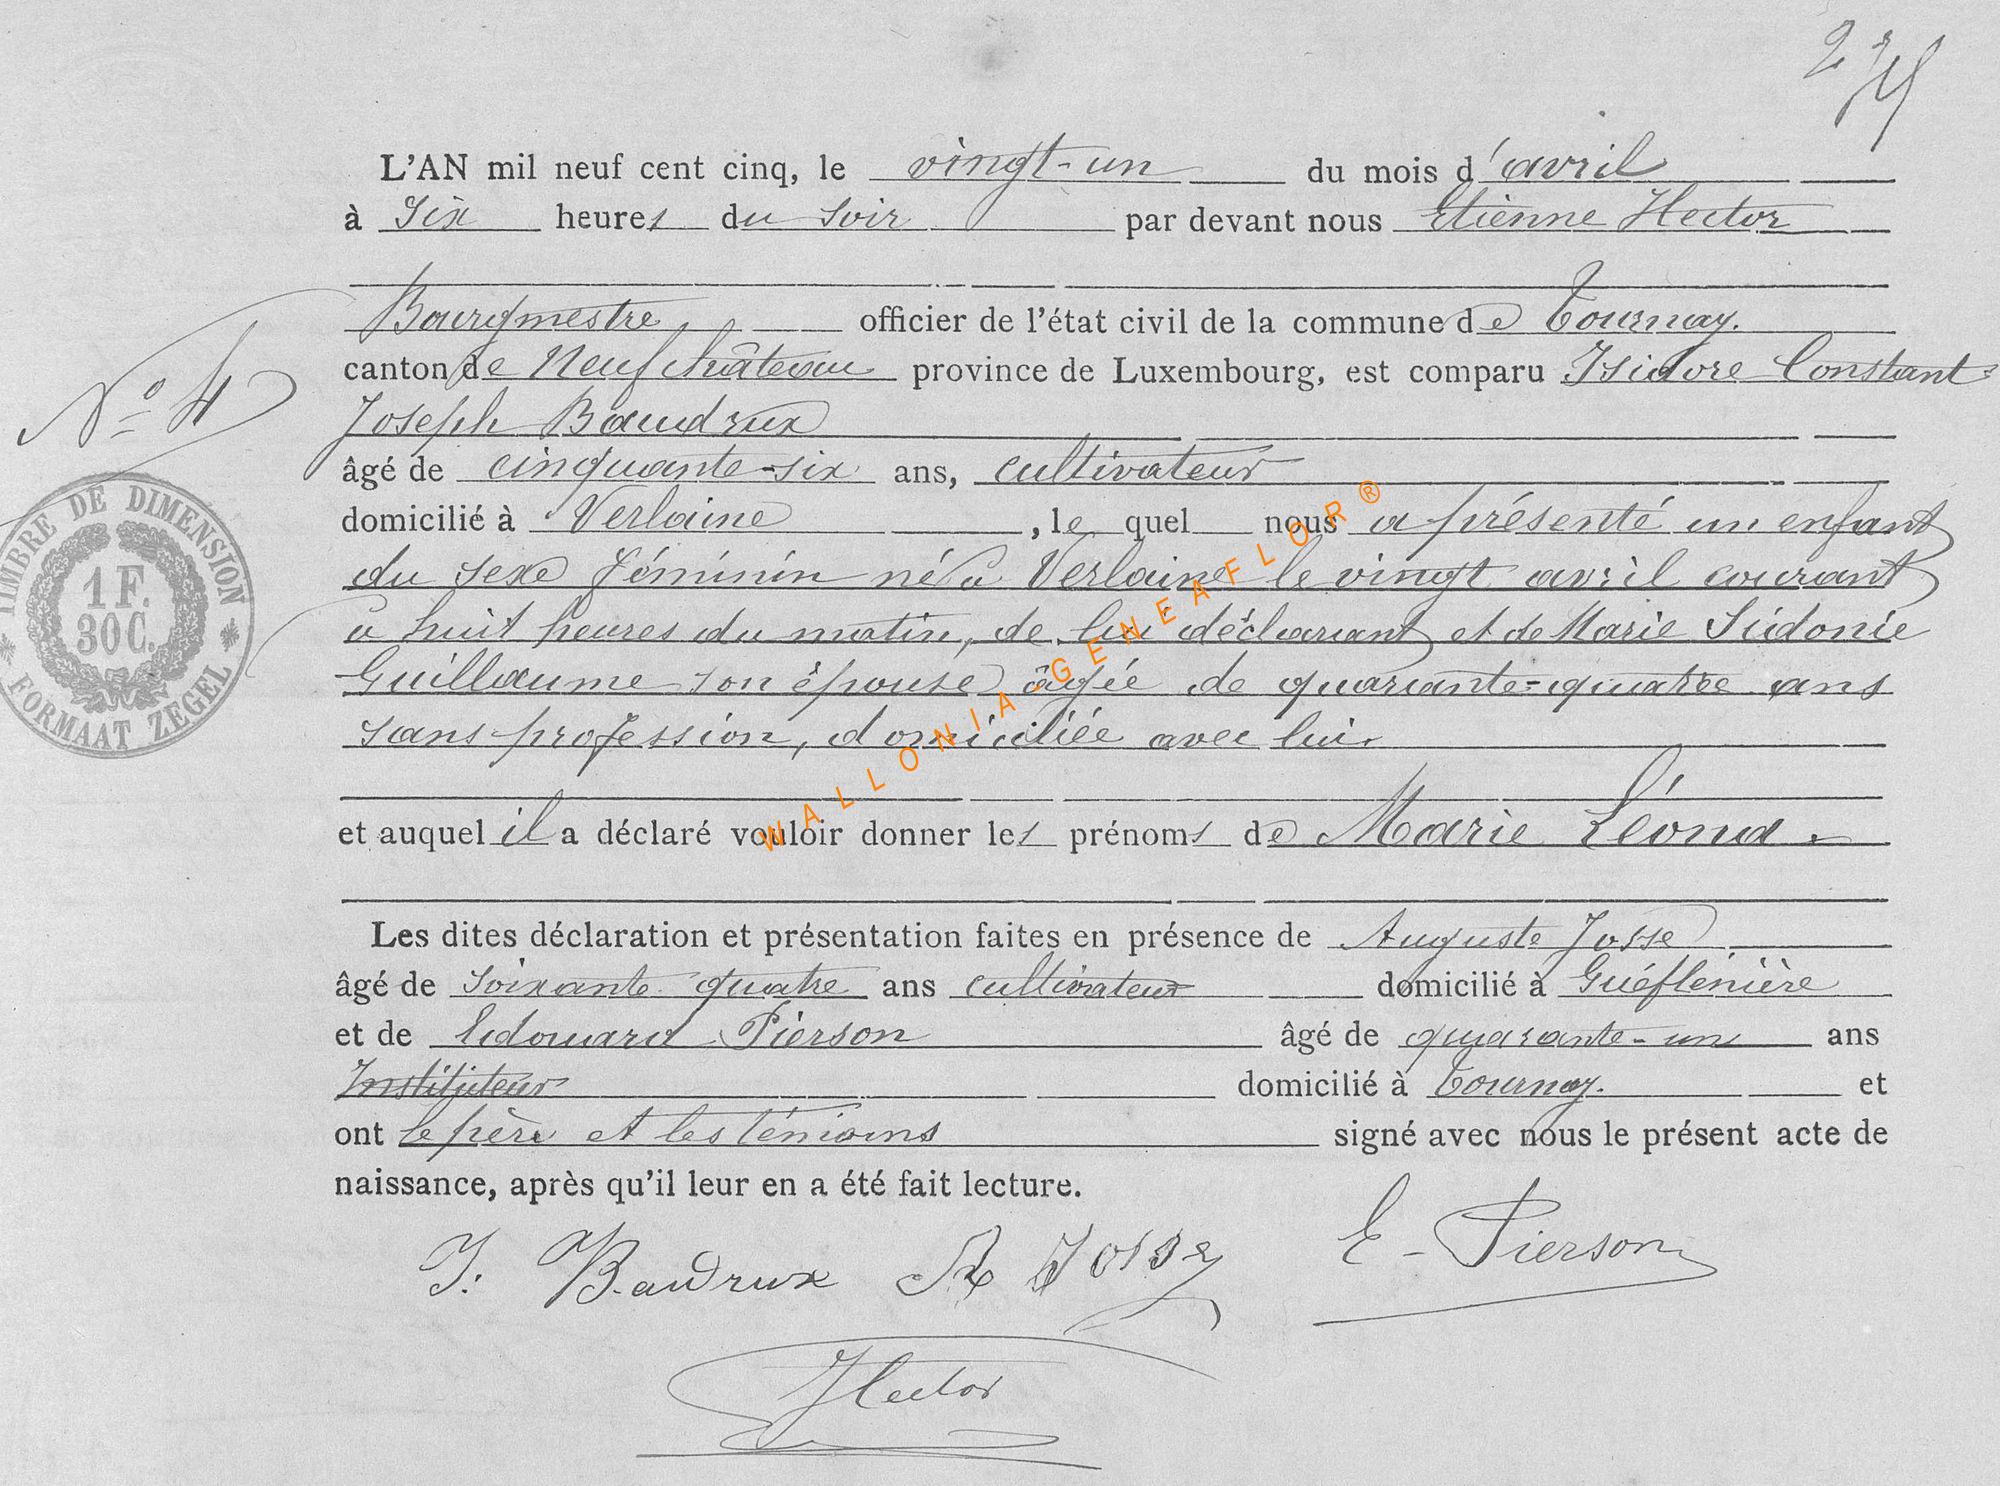 L'AN mil neuf cent cinq, le vingt-un du mois d'avril
à Six heures du soir par devant nous Etienne Hector
Bourgmestre officier de l'état civil de la commune de Tournay.
canton de Neufchâteau province de Luxembourg, est comparu Isidore Constant
Joseph Baudrux
N° 4
âgé de cinquante-six ans, cultivateur
domicilié à Verlaine, le quel nous a présenté un enfant
du sexe féminin né à Verlaine le vingt avril courant
à huit heures du matin, de lui déclarant et de Marie Sidonie
Guillaume son épouse âgée de quarante-quatre ans
sans profession, domiciliée avec lui.
et auquel il a déclaré vouloir donner les prénoms de Marie Léona.
Les dites déclaration et présentation faites en présence de Auguste Josse
âgé de soixante quatre ans cultivateur domicilié à
et de Edouard Pierson âgé de quarante-un ans
Instituteur domicilié à Tournay. et
ont le père et les témoins signé avec nous le présent acte de
naissance, après qu'il leur en a été fait lecture.
I. Baudrux A Josse E - Pierson
Hector
TIMBRE DE DIMENSION
1 F.
30 C.
FORMAAT ZEGEL
WALLONIA GENEAFLOR ®